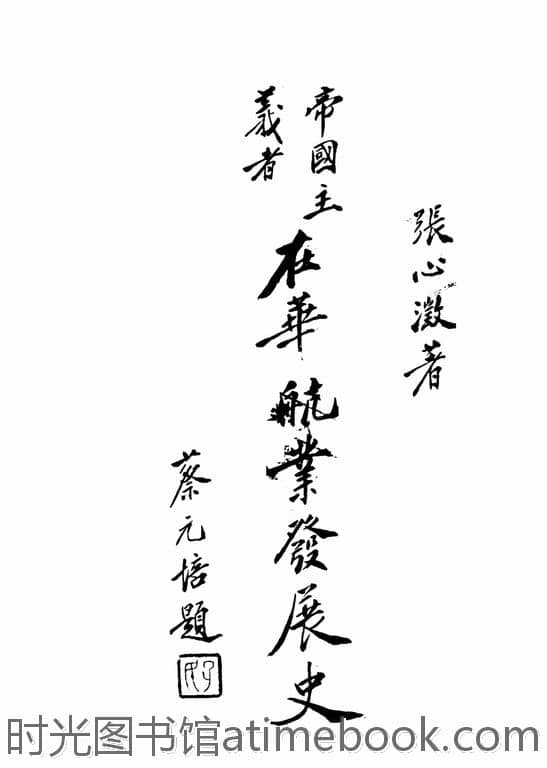 張心澂著
帝國主
義者
在華航業發展史
蔡元培題
时光图书馆atimebook.com